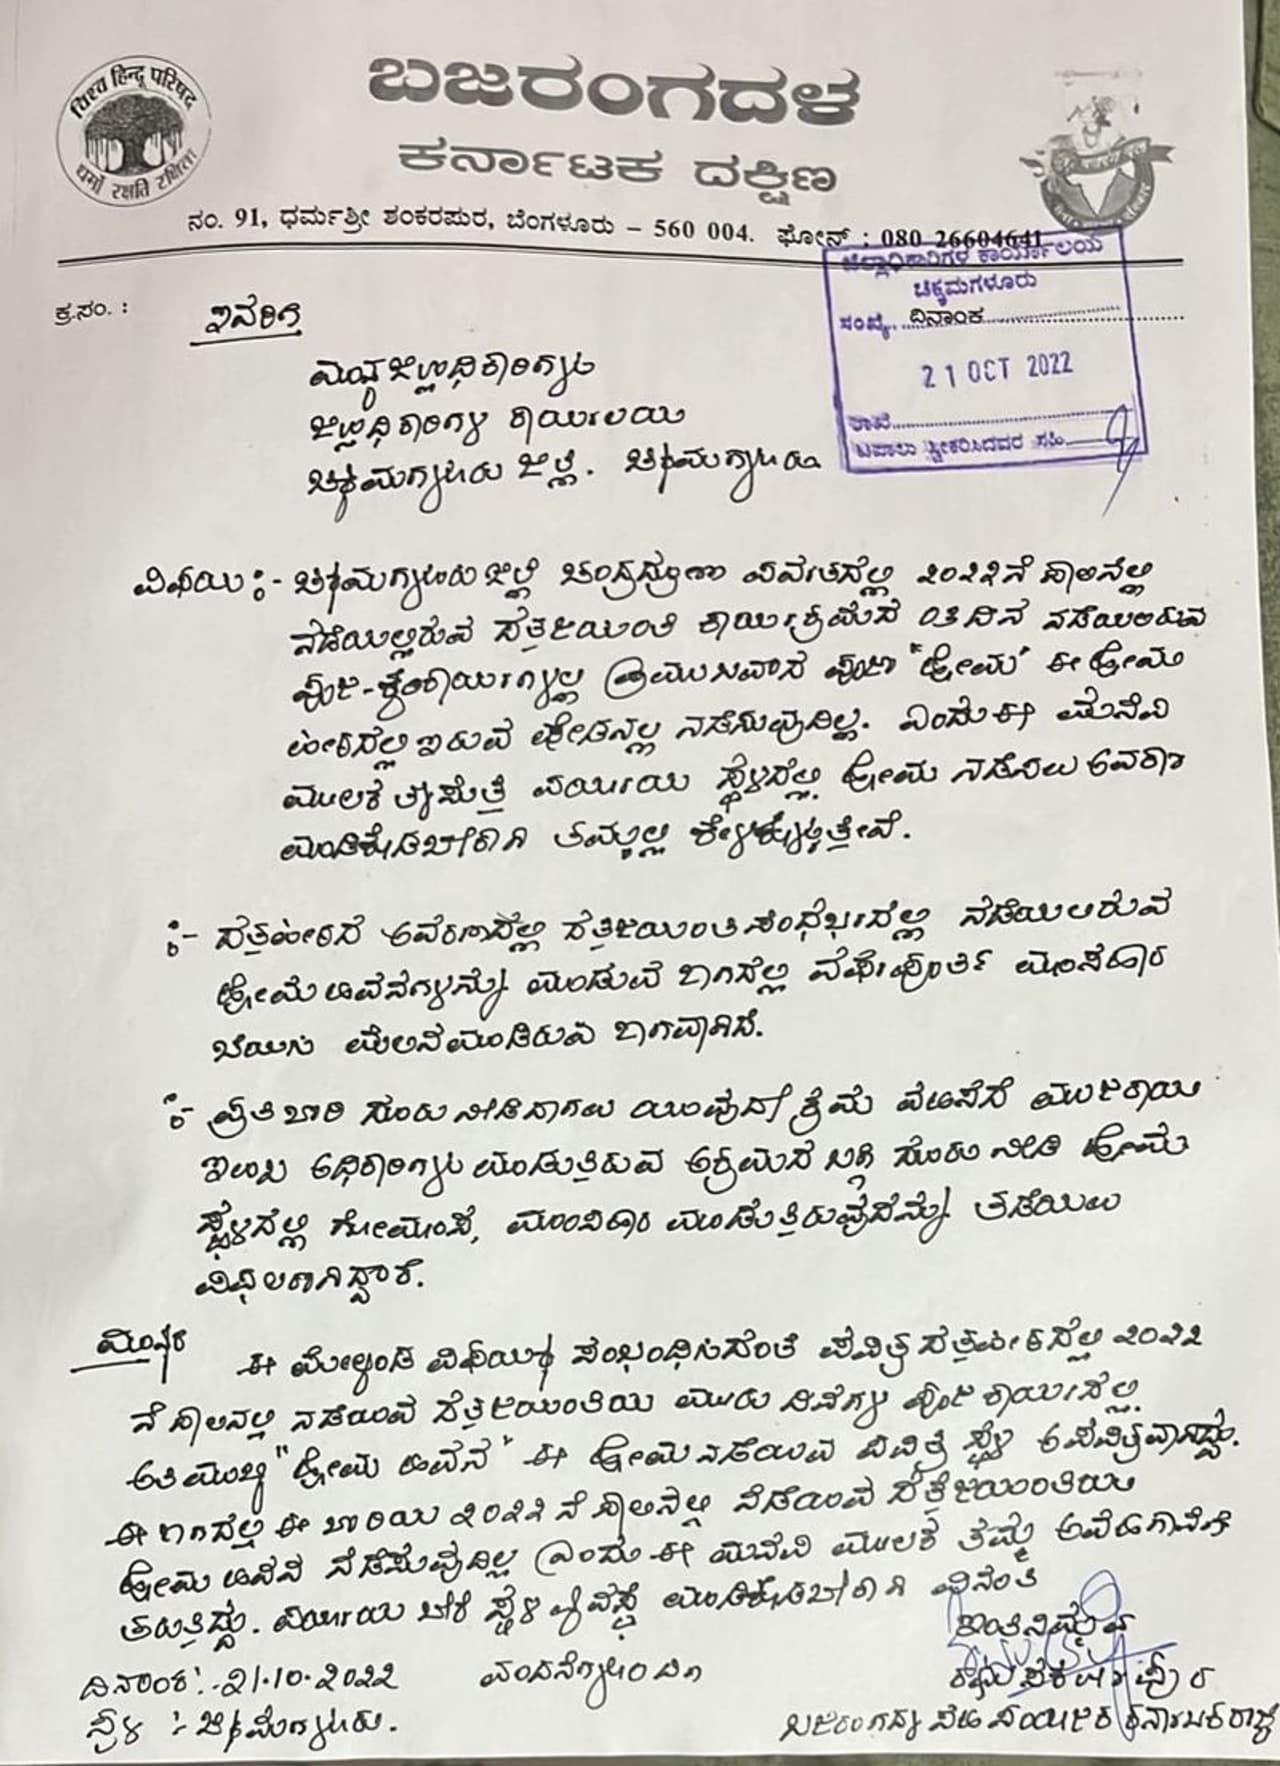 ಬಜರಂಗದಳ
विश्व हिन्दू परिषद
धर्मो रक्षति रक्षिता
ಕರ್ನಾಟಕ ದಕ್ಷಿಣ
ನಂ. 91, ಧರ್ಮಶ್ರೀ ಶಂಕರಪುರ, ಬೆಂಗಳೂರು – 560 004. ಫೋನ್ : 080 26604641
ಜಿಲ್ಲಾಧಿಕಾರಿಗಳ ಕಾರ್ಯಾಲಯ
ಚಿಕ್ಕಮಗಳೂರು
ಸಂಖ್ಯೆ
ಕ್ರ.ಸಂ. :
ದಿನಾಂಕ
21 OCT 2022
ಇವರಿಗೆ
ಮಾನ್ಯ ಜಿಲ್ಲಾಧಿಕಾರಿಗಳು
ಜಿಲ್ಲಾಧಿಕಾರಿಗಳ ಕಾರ್ಯಾಲಯ
ಚಿಕ್ಕಮಗಳೂರು ಜಿಲ್ಲೆ. ಚಿಕ್ಕಮಗಳೂರು
ವಿಷಯ :- ಚಿಕ್ಕಮಗಳೂರು ಜಿಲ್ಲೆ ಚಂದ್ರದ್ರೋಣ ಪರ್ವತದಲ್ಲಿ ೨೦೨೨ನೆ ಸಾಲಿನಲ್ಲಿ
ನಡೆಯಲ್ಲಿರುವ ದತ್ತಜಯಂತಿ ಕಾರ್ಯಕ್ರಮದ ೦೩ದಿನ ನಡೆಯಲಿರುವ
ಪೂಜಾ-ಕೈಂಕಾರ್ಯಗಳಲ್ಲಿ ಪ್ರಮುಖವಾದ ಪೂಜಾ "ಹೋಮ" ಈ ಹೋಮ
ಪೀಠದಲ್ಲಿ ಇರುವ ಶೇಡನಲ್ಲಿ ನಡೆಸುವುದಿಲ್ಲ. ಎಂದು ಈ ಮನವಿ
ಮೂಲಕ ತ್ಯಜಿಸುತ್ತ ಪರ್ಯಾಯ ಸ್ಥಳದಲ್ಲಿ ಹೋಮ ನಡೆಸಲು ಅವಕಾಶ
ಮಾಡಿಕೊಡಬೇಕಾಗಿ ತಮ್ಮಲ್ಲಿ ಕೇಳಿಕೊಳ್ಳುತ್ತೇವೆ.
:- ದತ್ತಪೀಠದ ಆವರಣದಲ್ಲಿ ದತ್ತಜಯಂತಿ ಸಂದರ್ಭದಲ್ಲಿ ನಡೆಯಲಿರುವ
ಹೋಮ ಹವನಗಳನ್ನು ಮಾಡುವ ಜಾಗದಲ್ಲಿ ವರ್ಷಪೂರ್ತಿ ಮಾಂಸಹಾರ
ಬೇಯಿಸಿ ಮಲಿನಮಾಡಿರುವ ಜಾಗವಾಗಿದೆ.
:- ಪ್ರತಿ ಬಾರಿ ದೂರು ನೀಡಿದಾಗಲು ಯಾವುದೇ ಕ್ರಮ ವಹಿಸದೆ ಮುಜರಾಯಿ
ಇಲಾಖೆ ಅಧಿಕಾರಿಗಳು ಮಾಡುತ್ತಿರುವ ಅಕ್ರಮದ ಬಗ್ಗೆ ದೂರು ನೀಡಿ ಹೋಮ
ಸ್ಥಳದಲ್ಲಿ ಗೋಮಾಂಸ, ಮಾಂಸಹಾರ ಮಾಡುತ್ತಿರುವುದನ್ನು ತಡೆಯಲು
ವಿಫಲರಾಗಿದ್ದಾರೆ.
ಮಾನ್ಯರೆ
ಈ ಮೇಲ್ಕಂಡ ವಿಷಯಕ್ಕೆ ಸಂಬಂಧಿಸಿದಂತೆ ಪವಿತ್ರ ದತ್ತಪೀಠದಲ್ಲಿ ೨೦೨೨
ನೆ ಸಾಲಿನಲ್ಲಿ ನಡೆಯುವ ದತ್ತಜಯಂತಿಯ ಮೂರು ದಿನಗಳ ಪೂಜಾ ಕಾರ್ಯದಲ್ಲಿ
ಅತಿ ಮುಖ್ಯ "ಹೋಮ ಹವನ" ಈ ಹೋಮ ನಡೆಯುವ ಪವಿತ್ರ ಸ್ಥಳ ಅಪವಿತ್ರವಾಗಿದ್ದು.
ಈ ಜಾಗದಲ್ಲಿ ಈ ಬಾರಿಯ ೨೦೨೨ ನೆ ಸಾಲಿನಲ್ಲಿ ನಡೆಯುವ ದತ್ತಜಯಂತಿಯ
ಹೋಮ ಹವನ ನಡೆಸುವುದಿಲ್ಲ ಎಂದು ಈ ಮನವಿ ಮೂಲಕ ತಮ್ಮ ಅವಗಾಹನೆಗೆ
ತರುತ್ತಿದ್ದು. ಪರ್ಯಾಯ ಬೇರೆ ಸ್ಥಳ ವ್ಯವಸ್ಥೆ ಮಾಡಿಕೊಡಬೇಕಾಗಿ ವಿನಂತಿ
ದಿನಾಂಕ :- 21.10.2022 ವಂದನೆಗಳೊಂದಿಗೆ
ಸ್ಥಳ :- ಚಿಕ್ಕಮಗಳೂರು.
ರಘು ಸಕಲೇಶಪುರ
ಬಜರಂಗದಳ ಸಹ ಸಂಯೋಜಕ ಕರ್ನಾಟಕ ರಾಜ್ಯ